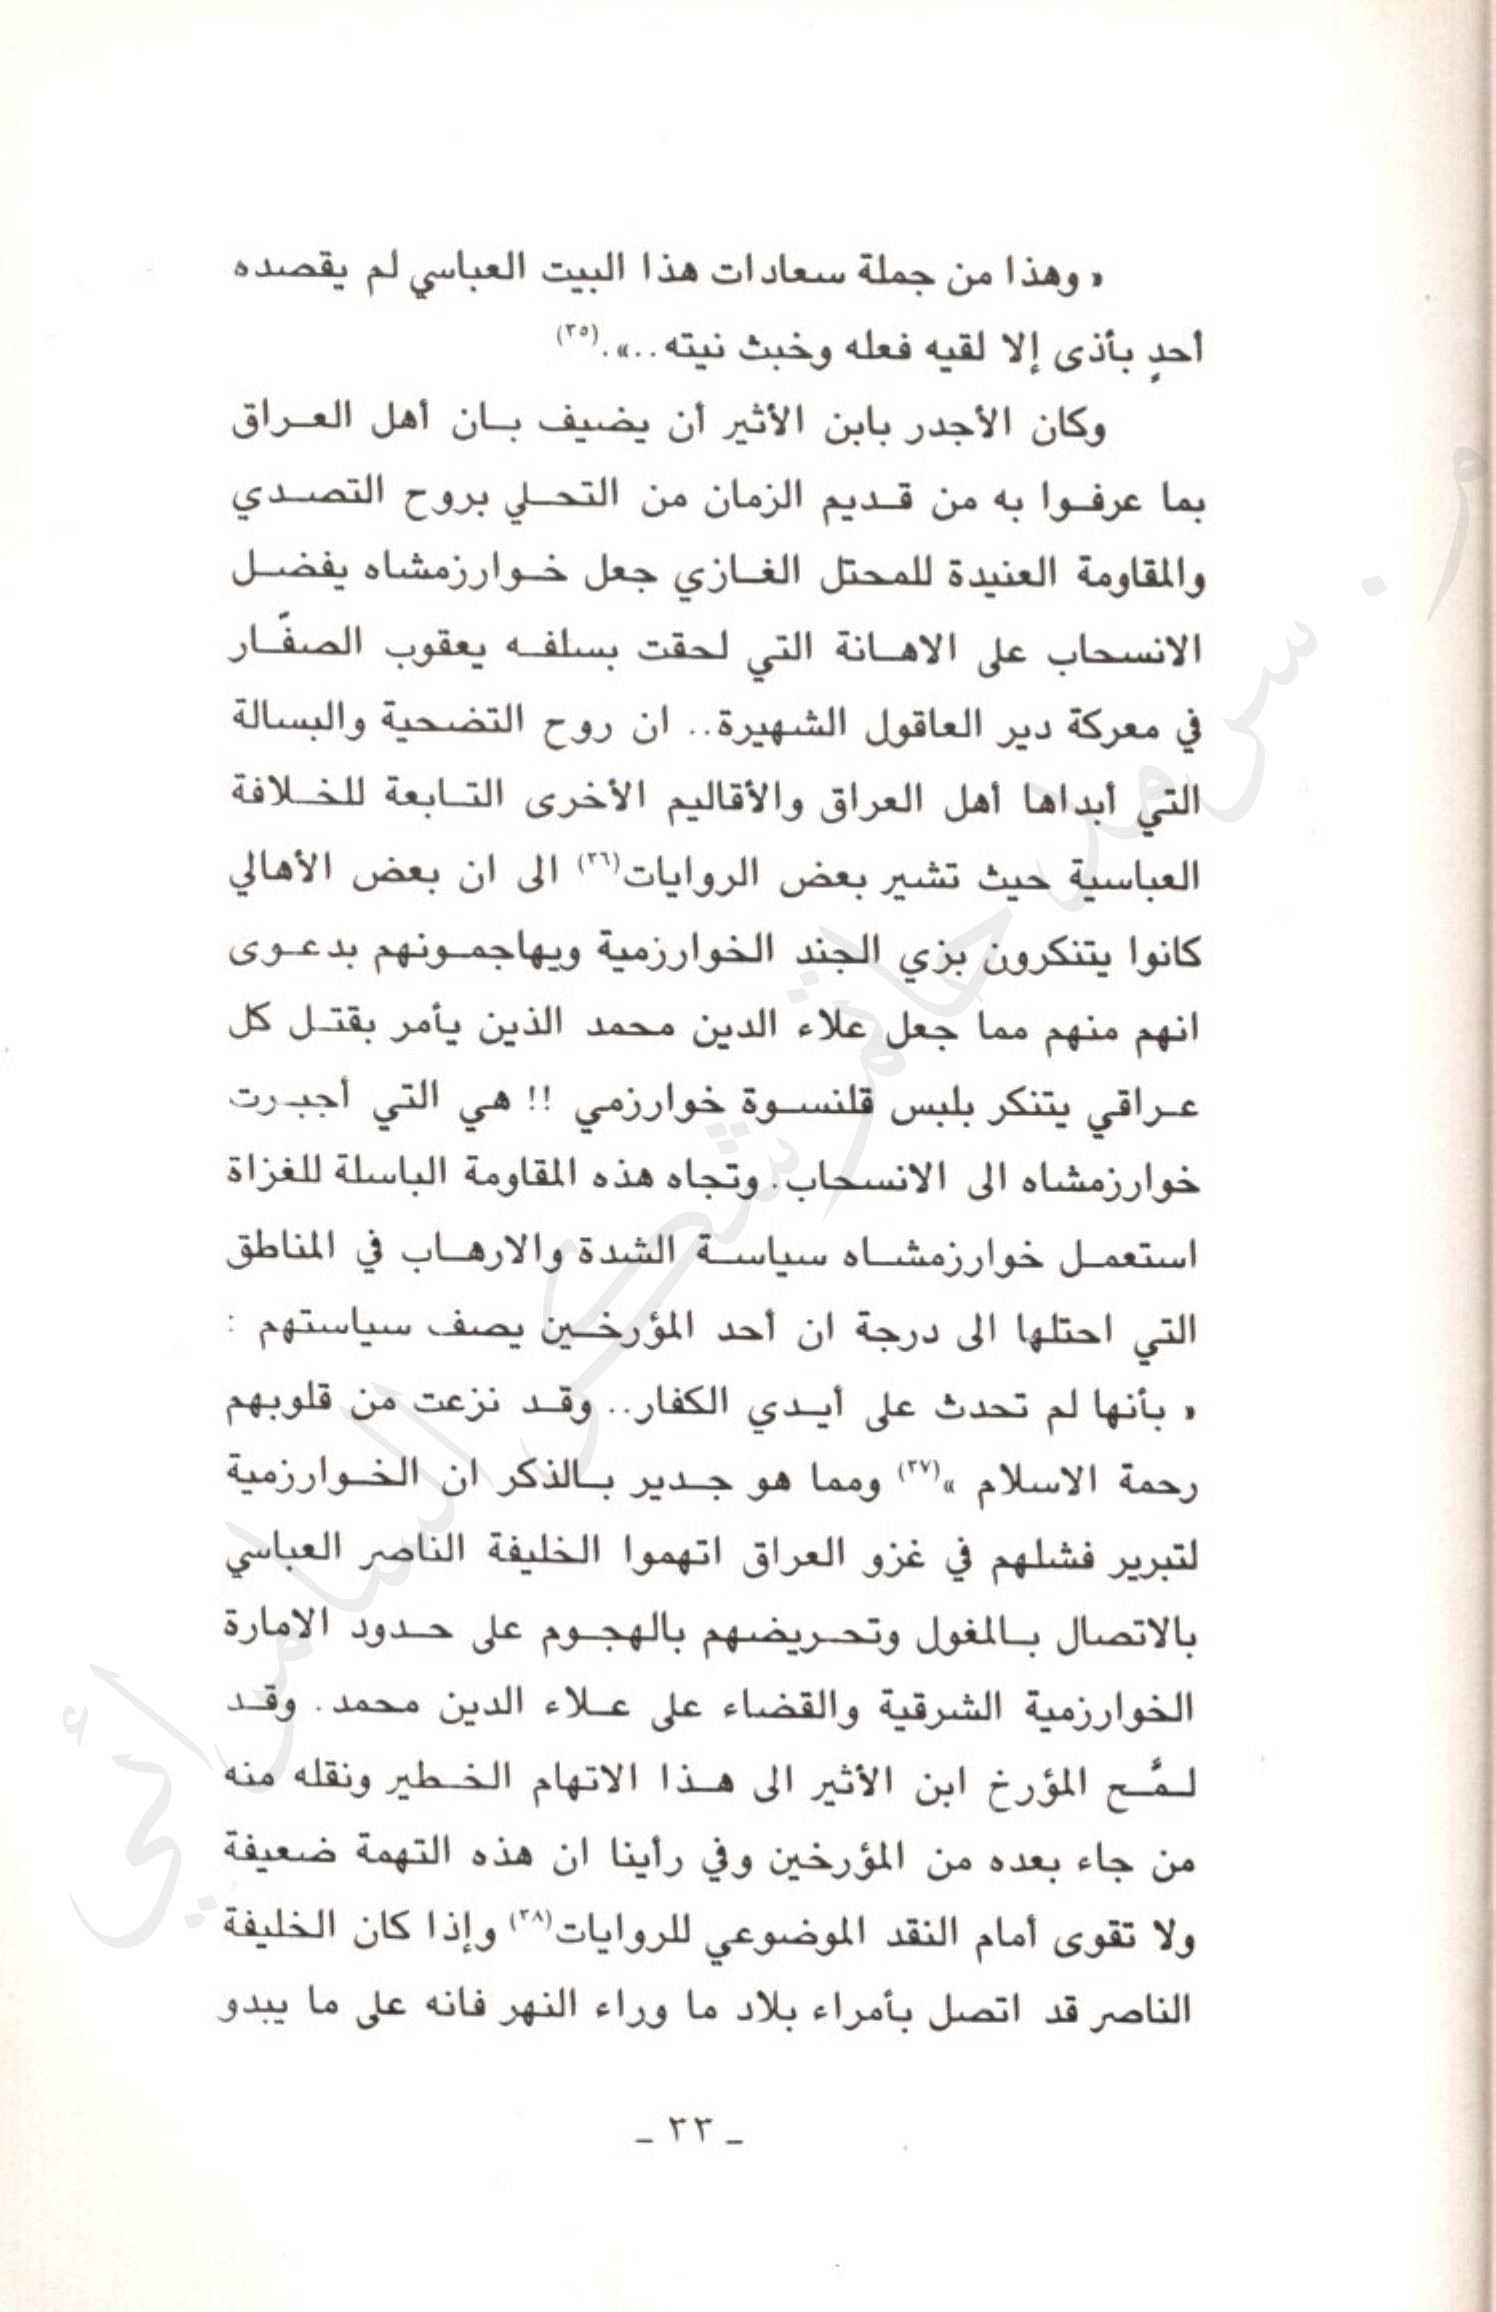 « وهذا من جملة سعادات هذا البيت العباسي لم يقصده
أحدٍ بأذى إلا لقيه فعله وخبث نيته ..».(٣٥)
وكان الأجدر بابن الأثير أن يضيف بان أهل العراق
بما عرفوا به من قديم الزمان من التحلي بروح التصدي
والمقاومة العنيدة للمحتل الغازي جعل خوارزمشاه يفضل
الانسحاب على الاهانة التي لحقت بسلفه يعقوب الصفّار
في معركة دير العاقول الشهيرة.. ان روح التضحية والبسالة
التي أبداها أهل العراق والأقاليم الأخرى التابعة للخلافة
العباسية حيث تشير بعض الروايات(٣٦) الى ان بعض الأهالي
كانوا يتنكرون بزي الجند الخوارزمية ويهاجمونهم بدعوى
انهم منهم مما جعل علاء الدين محمد الذين يأمر بقتل كل
عراقي يتنكر بلبس قلنسوة خوارزمي !! هي التي أجبرت
خوارزمشاه الى الانسحاب. وتجاه هذه المقاومة الباسلة للغزاة
استعمل خوارزمشاه سياسة الشدة والارهاب في المناطق
التي احتلها الى درجة ان أحد المؤرخين يصف سياستهم :
« بأنها لم تحدث على أيدي الكفار.. وقد نزعت من قلوبهم
رحمة الاسلام »(٣٧) ومما هو جدير بالذكر ان الخوارزمية
لتبرير فشلهم في غزو العراق اتهموا الخليفة الناصر العباسي
بالاتصال بالمغول وتحريضهم بالهجوم على حدود الامارة
الخوارزمية الشرقية والقضاء على علاء الدين محمد. وقد
لمَّح المؤرخ ابن الأثير الى هذا الاتهام الخطير ونقله منه
من جاء بعده من المؤرخين وفي رأينا ان هذه التهمة ضعيفة
ولا تقوى أمام النقد الموضوعي للروايات(٣٨) وإذا كان الخليفة
الناصر قد اتصل بأمراء بلاد ما وراء النهر فانه على ما يبدو
ـ ٣٣ ـ
م. سرمد حاتم شكر السامرائي